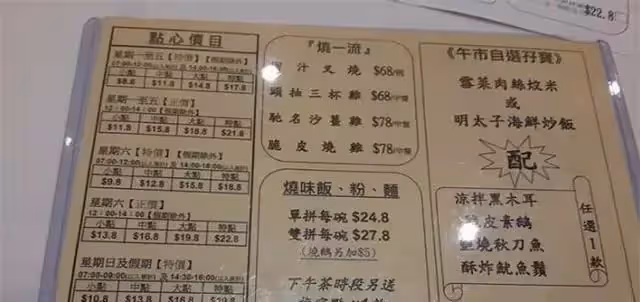 $22.8
點心價目
星期一至五【特價】【假期除外】
小點 中點 大點 特點
$8.8 $11.8 $14.8 $17.8
星期一至五【正價】
12:00-14:00【假期除外】
小點 中點 大點 特點
$11.8 $15.8 $18.8 $21.8
星期六【特價】【假期除外】
小點 中點 大點 特點
$9.8 $12.8 $15.8 $18.8
星期六【正價】
12:00-14:00【假期除外】
小點 中點 大點 特點
$13.8 $16.8 $19.8 $22.8
星期日及假期【特價】
小點 中點 大點 特點
$10.8 $13.8 $16.8 $19.8
『燒一流』
汁叉燒 $68/例
頭抽三杯雞 $68/中餐
馳名沙薑雞 $78/中餐
脆皮燒雞 $78/中餐
燒味飯、粉、麵
單拼每碗 $24.8
雙拼每碗 $27.8
(燒鵝另加$5)
下午茶時段另送
《午市自選孖寶》
雪菜肉絲炆米
或
明太子海鮮炒飯
配
涼拌黑木耳
脆皮素鵝
鹽燒秋刀魚
酥炸魷魚鬚
任選1款